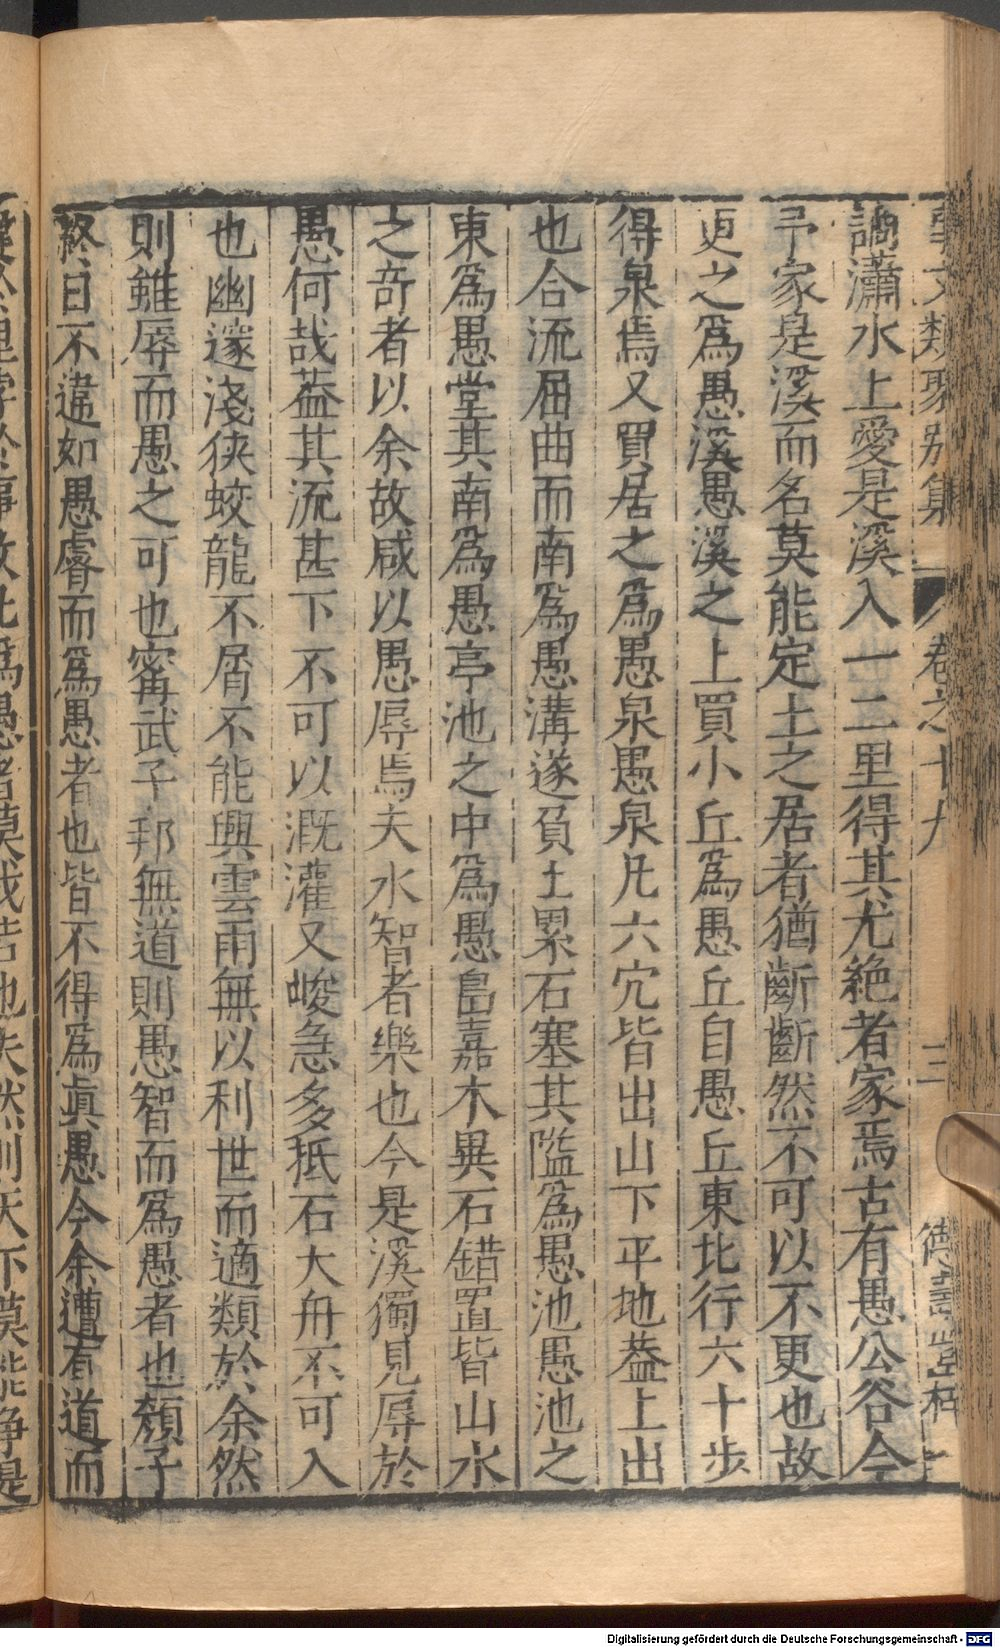 類聚別集 卷之十九 三
謫瀟水上愛是溪入一二里得其尤絶者家焉古有愚公谷今
予家是溪而名莫能定土之居者猶齗齗然不可以不更也故
更之為愚溪愚溪之上買小丘為愚丘自愚丘東北行六十步
得泉焉又買居之為愚泉愚泉凡六穴皆出山下平地葢上出
也合流屈曲而南為愚溝遂負土累石塞其隘為愚池愚池之
東為愚堂其南為愚亭池之中為愚島嘉木異石錯置皆山水
之竒者以余故咸以愚辱焉夫水智者樂也今是溪獨見辱於
愚何哉葢其流甚下不可以溉灌又峻急多抵石大舟不可入
也幽邃淺狹蛟龍不屑不能興雲雨無以利世而適類於余然
則雖辱而愚之可也甯武子邦無道則愚智而為愚者也顏子
終日不違如愚睿而為愚者也皆不得為眞愚今余遭有道而
為愚者莫我若也夫然則天下莫能爭是
Digitalisierung gefördert durch die Deutsche Forschungsgemeinschaft - DFG